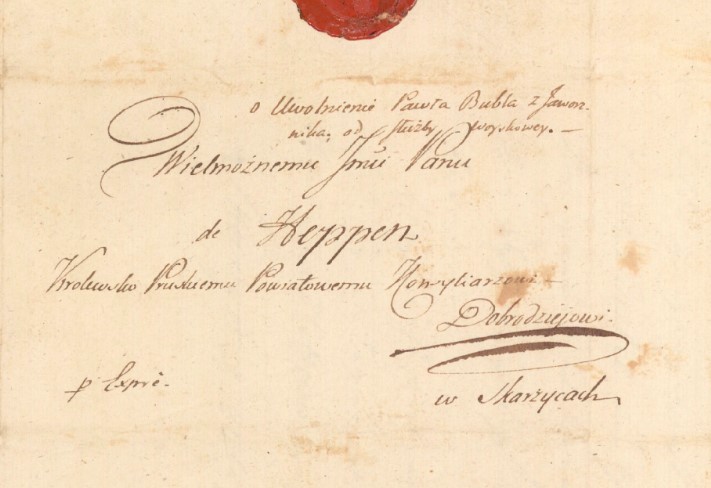 o Uwolnienie Pawła Bubla z Jawor-
nika, od służby woyskowey. —
Wielmożnemu Jmći Panu
de Heppen
Krolewsko Pruskiemu Powiatowemu Konsyliarzowi —
Dobrodziejowi.
p Expré.
w Skarżycach